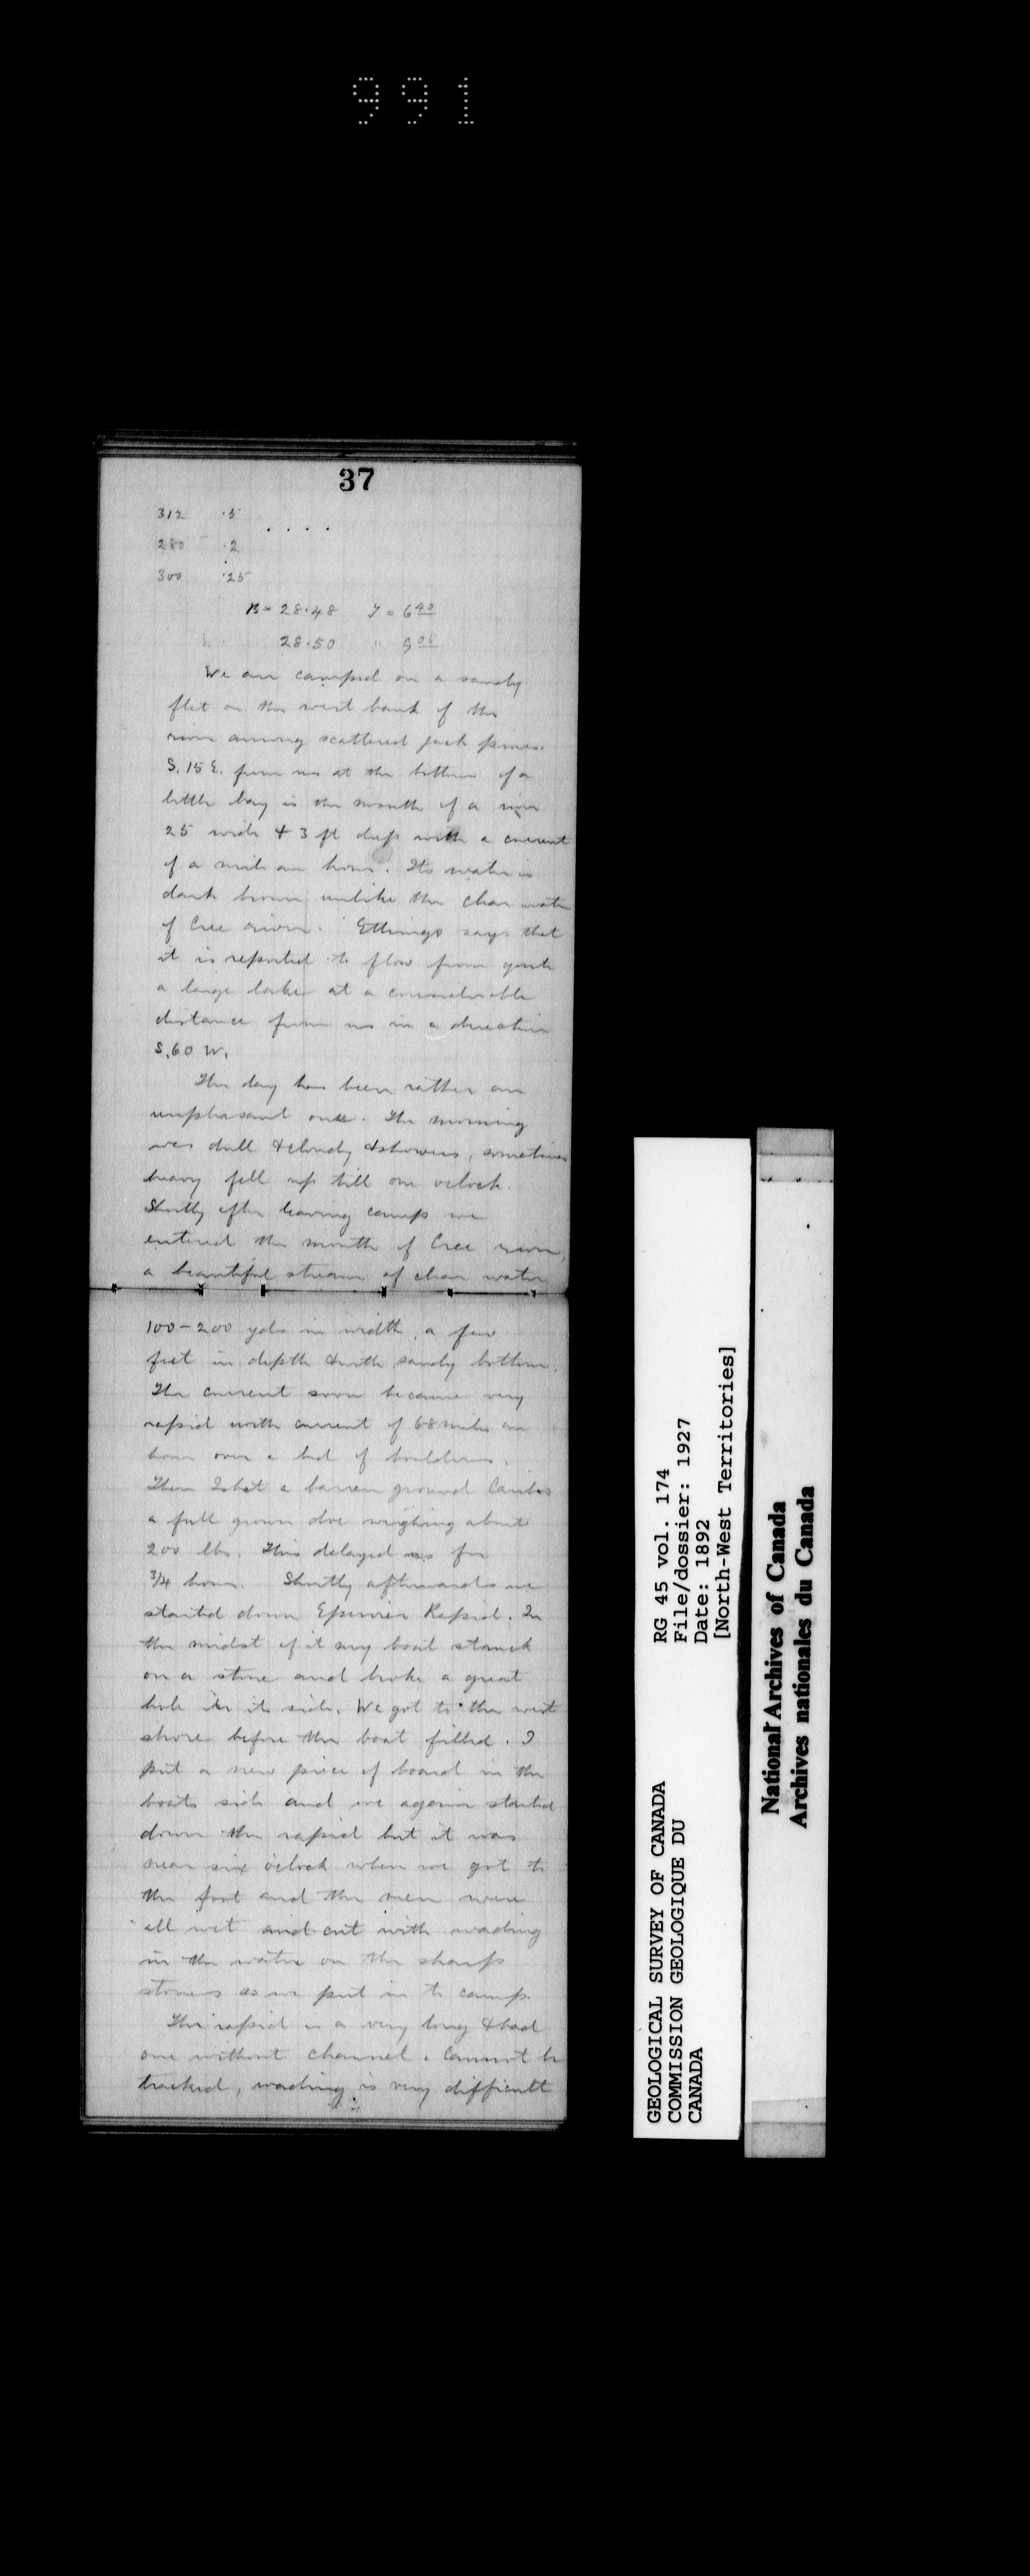 991
37
312 .5
280 .2
300 .25
B = 28.48 T = 6 40
28.50 " 9 05
We are camped on a sandy
flat on the west bank of the
river among scattered jack pines.
S. 15 E. from us at the bottom of a
little bay is the mouth of a river
25 wide & 3 ft deep with a current
of a mile an hour. Its water is
dark brown unlike the clear water
of Cree river. says that
it is reported to flow from quite
a large lake at a considerable
distance from us in a direction
S. 60 W.
The day has been rather an
unpleasant one. The morning
was dull & cloudy & showers, sometimes
heavy fell up till one oclock.
Shortly after leaving camp we
entered the mouth of Cree river,
a beautiful stream of clear water
100-200 yds in width, a few
feet in depth & with sandy bottom.
The current soon became very
rapid with current of 6 8 miles an
hour over a bed of boulders.
Then I shot a barren ground Caribou
a full grown doe weighing about
200 lbs. This delayed us for
3/4 hour. Shortly afterwards we
started down Rapid. In
the midst of it my boat struck
on a stone and broke a great
hole in its side. We got to the west
shore before the boat filled. I
put a new piece of board in the
boats side and we again started
down the rapid but it was
near six o'clock when we got to
the foot and the men were
all wet and cut with wading
in the water on the sharp
stones so we put in to camp.
This rapid is a very long & bad
one without channel. Cannot be
tracked, wading is very difficult
GEOLOGICAL SURVEY OF CANADA
COMMISSION GEOLOGIQUE DU
CANADA
RG 45 vol. 174
File/dossier: 1927
Date: 1892
[North-West Territories]
National Archives of Canada
Archives nationales du Canada